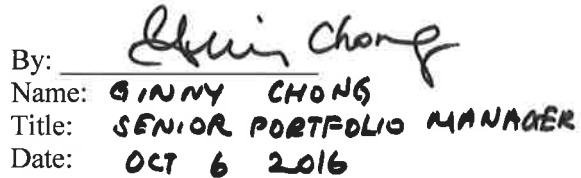 By: Chong
Name: GINNY CHONG
Title: SENIOR PORTFOLIO MANAGER
Date: OCT 6 2016